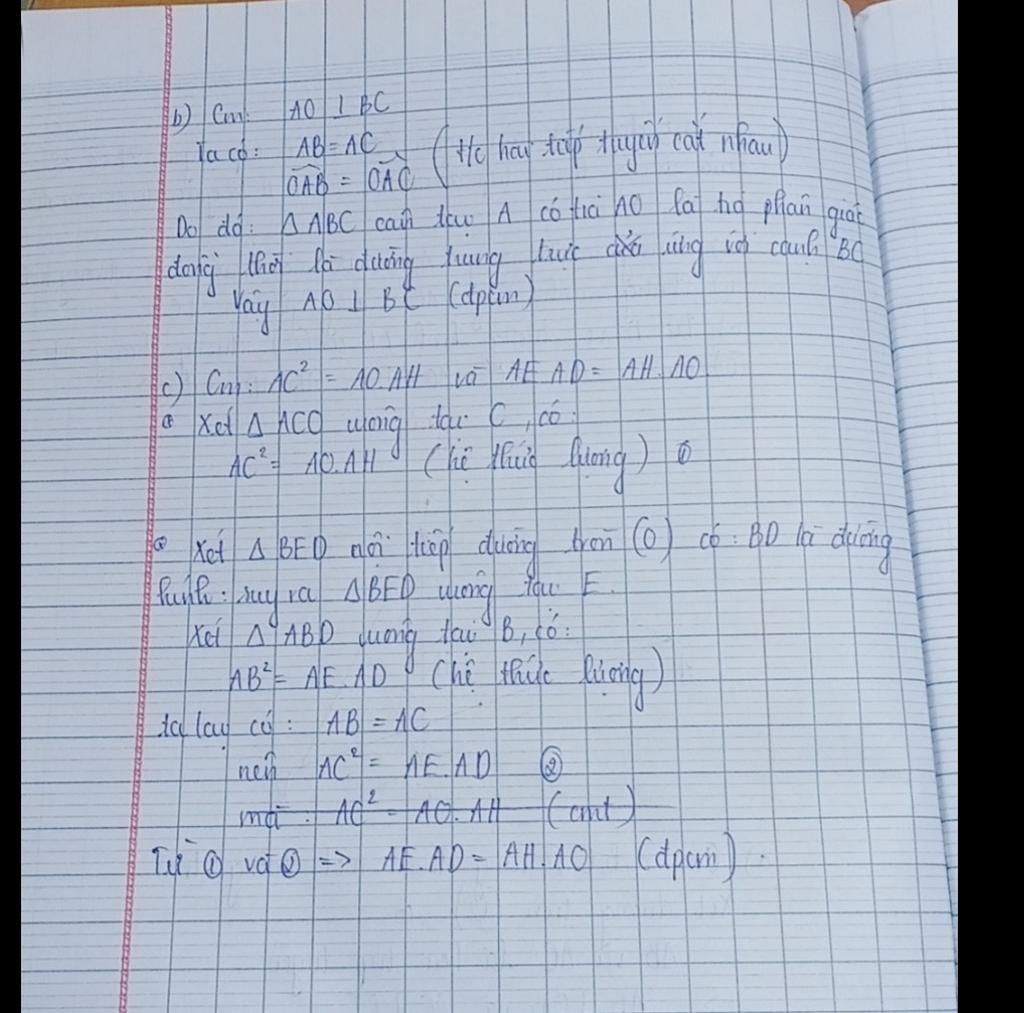 b) Cm: AO ⊥ BC
Ta có: AB = AC (t/c hai tiếp tuyến cắt nhau)
OAB = OAC
Do đó: Δ ABC cân tại A có tia AO là tia phân giác
đồng thời là đường trung trực ứng với cạnh BC
Vậy AO ⊥ BC (đpcm)
c) Cm: AC² = AO.AH và AE.AD = AH.AO
Xét Δ ACO vuông tại C, có:
AC² = AO.AH (hệ thức lượng) ①
Xét Δ BED nội tiếp đường tròn (O) có: BD là đường
kính: suy ra ΔBED vuông tại E.
Xét Δ ABD vuông tại B, có:
AB² = AE.AD (hệ thức lượng)
ta lại có: AB = AC
nên AC² = AE.AD ②
mà: AC² = AO.AH (cmt)
Từ ① và ② => AE.AD = AH.AO (đpcm).